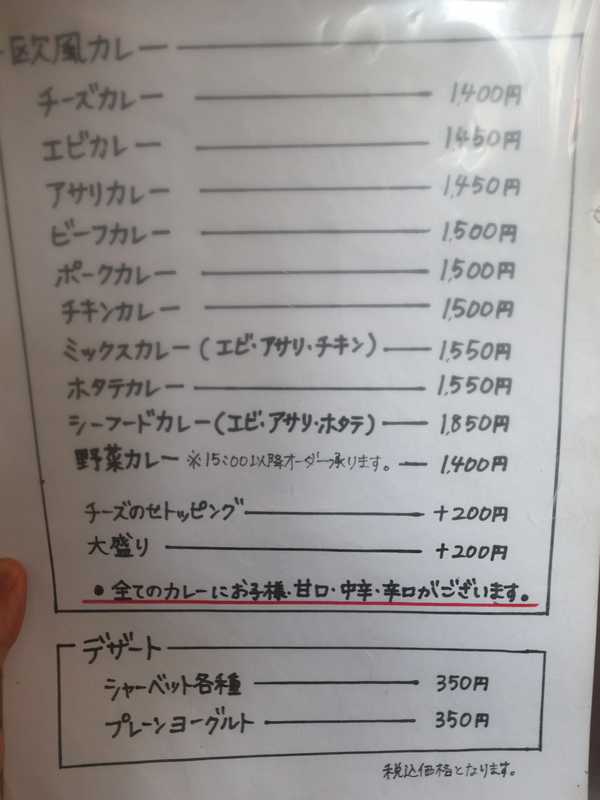 欧風カレー
チーズカレー 1,400円
エビカレー 1,450円
アサリカレー 1,450円
ビーフカレー 1,500円
ポークカレー 1,500円
チキンカレー 1,500円
ミックスカレー(エビ・アサリ・チキン) 1,550円
ホタテカレー 1,550円
シーフードカレー(エビ・アサリ・ホタテ) 1,850円
野菜カレー ※15:00以降オーダー承ります。 1,400円
チーズのせトッピング +200円
大盛り +200円
● 全てのカレーにお子様・甘口・中辛・辛口がございます。
デザート
シャーベット各種 350円
プレーンヨーグルト 350円
税込価格となります。